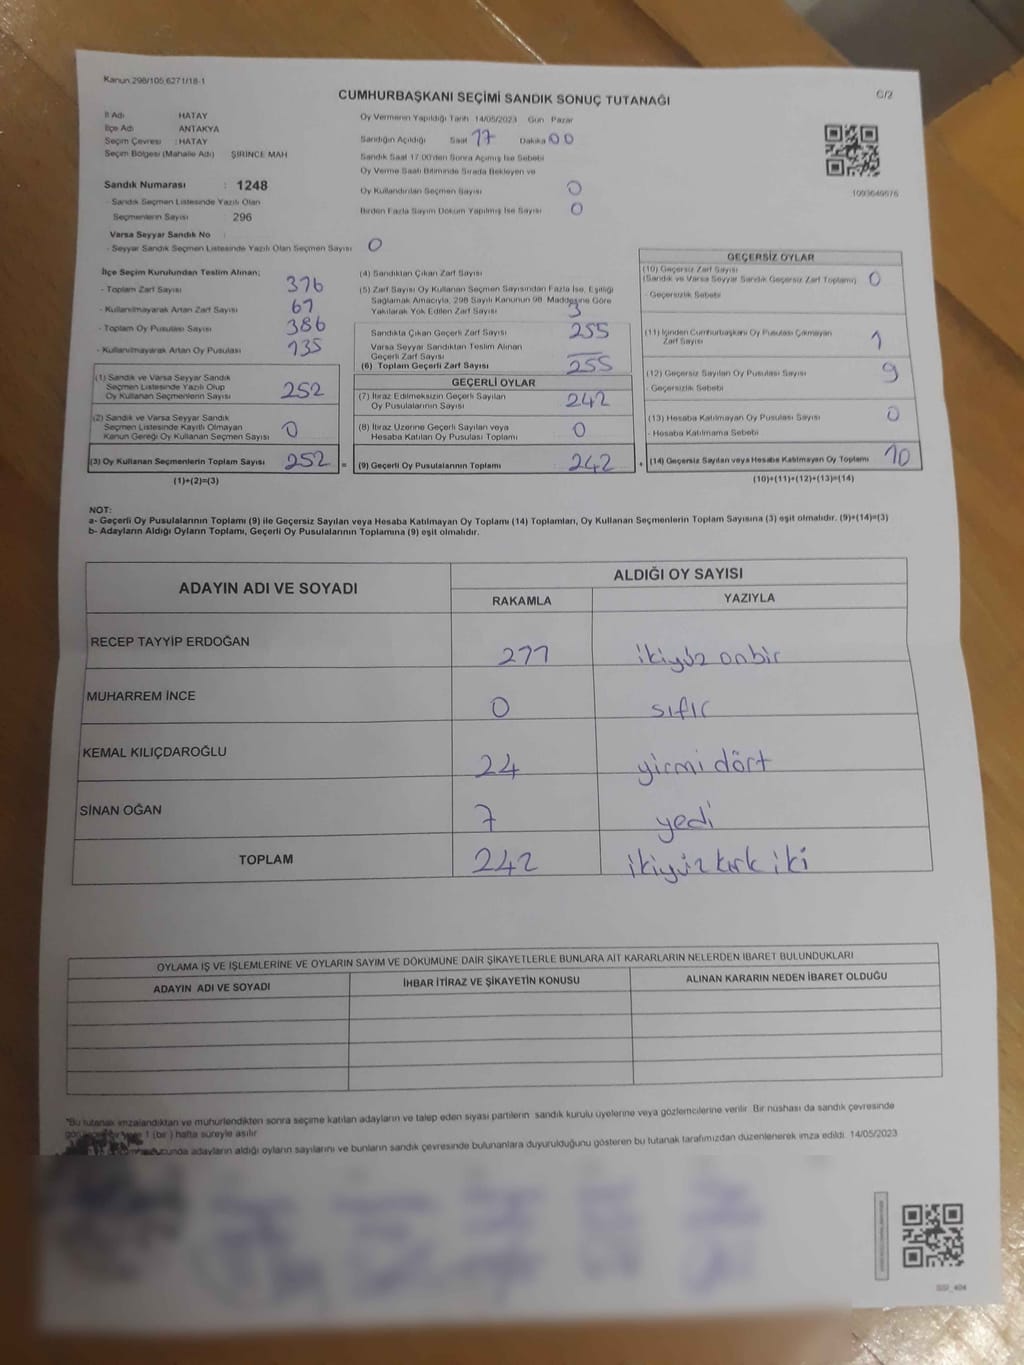 Kanun:298/105,6271/18-1
CUMHURBAŞKANI SEÇİMİ SANDIK SONUÇ TUTANAĞI
C/2
İl Adı : HATAY
İlçe Adı : ANTAKYA
Seçim Çevresi : HATAY
Seçim Bölgesi (Mahalle Adı) : ŞİRİNCE MAH
Sandık Numarası : 1248
- Sandık Seçmen Listesinde Yazılı Olan
Seçmenlerin Sayısı : 296
Varsa Seyyar Sandık No :
- Seyyar Sandık Seçmen Listesinde Yazılı Olan Seçmen Sayısı : 0
Oy Vermenin Yapıldığı Tarih : 14/05/2023 Gün : Pazar
Sandığın Açıldığı Saat 17 Dakika 00
Sandık Saat 17.00'den Sonra Açılmış İse Sebebi
Oy Verme Saati Bitiminde Sırada Bekleyen ve
Oy Kullandırılan Seçmen Sayısı 0
Birden Fazla Sayım Döküm Yapılmış İse Sayısı 0
1093649876
İlçe Seçim Kurulundan Teslim Alınan;
- Toplam Zarf Sayısı 376
- Kullanılmayarak Artan Zarf Sayısı 67
- Toplam Oy Pusulası Sayısı 386
- Kullanılmayarak Artan Oy Pusulası 135
(1) Sandık ve Varsa Seyyar Sandık
Seçmen Listesinde Yazılı Olup
Oy Kullanan Seçmenlerin Sayısı 252
(2) Sandık ve Varsa Seyyar Sandık
Seçmen Listesinde Kayıtlı Olmayan
Kanun Gereği Oy Kullanan Seçmen Sayısı 0
(3) Oy Kullanan Seçmenlerin Toplam Sayısı 252 =
(1)+(2)=(3)
(4) Sandıktan Çıkan Zarf Sayısı
(5) Zarf Sayısı Oy Kullanan Seçmen Sayısından Fazla İse, Eşitliği
Sağlamak Amacıyla, 298 Sayılı Kanunun 98. Maddesine Göre
Yakılarak Yok Edilen Zarf Sayısı 3
Sandıkta Çıkan Geçerli Zarf Sayısı 255
Varsa Seyyar Sandıktan Teslim Alınan
Geçerli Zarf Sayısı
(6) Toplam Geçerli Zarf Sayısı 255
GEÇERLİ OYLAR
(7) İtiraz Edilmeksizin Geçerli Sayılan
Oy Pusulalarının Sayısı 242
(8) İtiraz Üzerine Geçerli Sayılan veya
Hesaba Katılan Oy Pusulası Toplamı 0
(9) Geçerli Oy Pusulalarının Toplamı 242 +
GEÇERSİZ OYLAR
(10) Geçersiz Zarf Sayısı
(Sandık ve Varsa Seyyar Sandık Geçersiz Zarf Toplamı) 0
- Geçersizlik Sebebi
(11) İçinden Cumhurbaşkanı Oy Pusulası Çıkmayan
Zarf Sayısı 1
(12) Geçersiz Sayılan Oy Pusulası Sayısı 9
- Geçersizlik Sebebi
(13) Hesaba Katılmayan Oy Pusulası Sayısı 0
- Hesaba Katılmama Sebebi
(14) Geçersiz Sayılan veya Hesaba Katılmayan Oy Toplamı 10
(10)+(11)+(12)+(13)=(14)
NOT:
a- Geçerli Oy Pusulalarının Toplamı (9) ile Geçersiz Sayılan veya Hesaba Katılmayan Oy Toplamı (14) Toplamları, Oy Kullanan Seçmenlerin Toplam Sayısına (3) eşit olmalıdır. (9)+(14)=(3)
b- Adayların Aldığı Oyların Toplamı, Geçerli Oy Pusulalarının Toplamına (9) eşit olmalıdır.
ADAYIN ADI VE SOYADI
ALDIĞI OY SAYISI
RAKAMLA YAZIYLA
RECEP TAYYİP ERDOĞAN 211 ikiyüz onbir
MUHARREM İNCE 0 sıfır
KEMAL KILIÇDAROĞLU 24 yirmi dört
SİNAN OĞAN 7 yedi
TOPLAM 242 ikiyüz kırk iki
OYLAMA İŞ VE İŞLEMLERİNE VE OYLARIN SAYIM VE DÖKÜMÜNE DAİR ŞİKAYETLERLE BUNLARA AİT KARARLARIN NELERDEN İBARET BULUNDUKLARI
ADAYIN ADI VE SOYADI İHBAR İTİRAZ VE ŞİKAYETİN KONUSU ALINAN KARARIN NEDEN İBARET OLDUĞU
*Bu tutanak imzalandıktan ve mühürlendikten sonra seçime katılan adayların ve talep eden siyasi partilerin sandık kurulu üyelerine veya gözlemcilerine verilir. Bir nüshası da sandık çevresinde
1 (bir) hafta süreyle asılır.
adayların aldığı oyların sayılarını ve bunların sandık çevresinde bulunanlara duyurulduğunu gösteren bu tutanak tarafımızdan düzenlenerek imza edildi. 14/05/2023